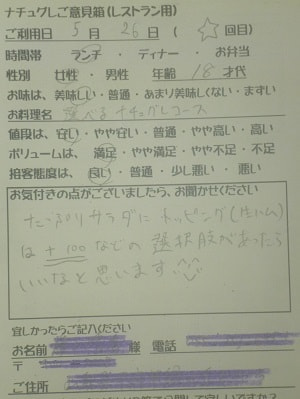 ナチュグしご意見箱(レストラン用)
ご利用日 5月 26日 ( ☆ 回目)
時間帯 ランチ ・ ディナー ・ お弁当
性別 女性 ・ 男性 年齢 18才代
お味は、美味しい・普通・あまり美味しくない・まずい
お料理名 選べるナチュグしコース
値段は、安い・やや安い・普通・やや高い・高い
ボリュームは、満足・やや満足・やや不足・不足
接客態度は、良い・普通・少し悪い・悪い
お気付きの点がございましたら、お聞かせください
たっぷりサラダにトッピング(生ハム)
は+100などの選択肢があったら
いいなと思います。
宜しかったらご記入ください
お名前 様 電話
〒
ご住所